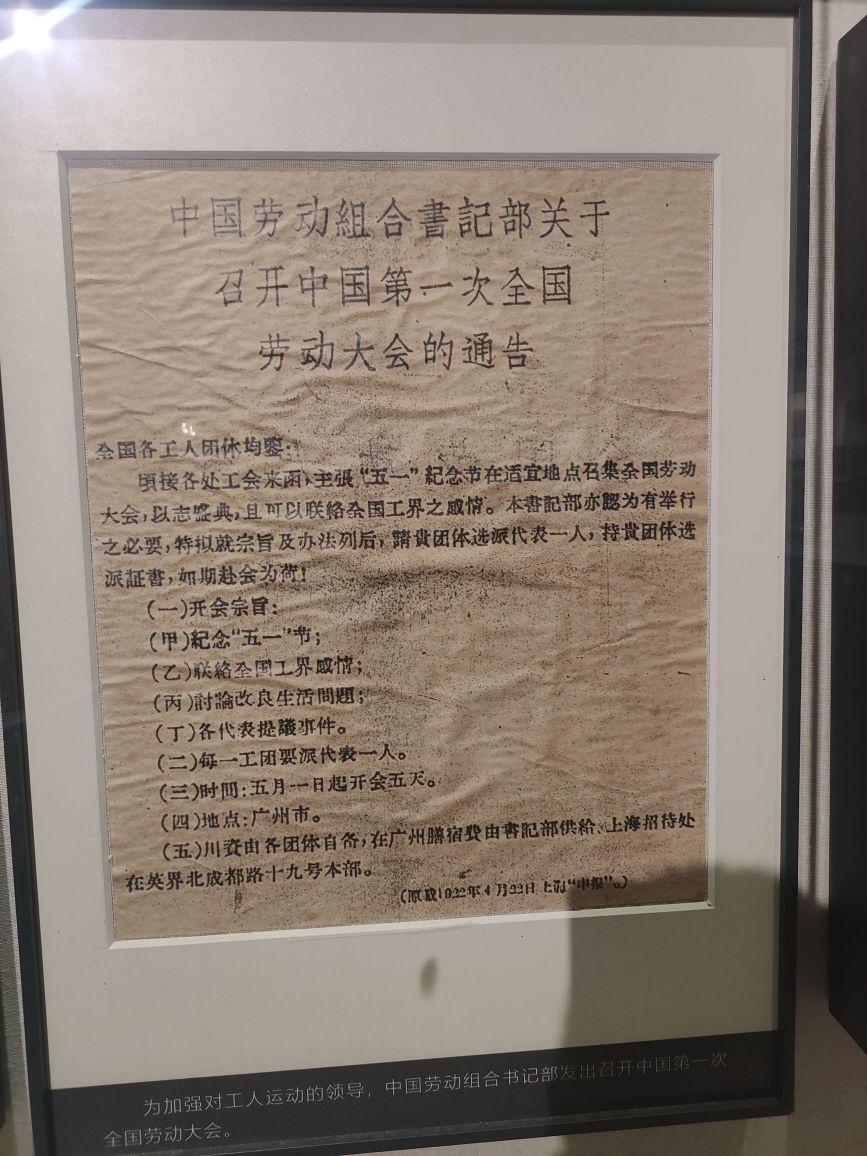 中国劳动組合書記部关于
召开中国第一次全国
劳动大会的通告
全国各工人团体均鉴:
頃接各处工会来函,主張“五一”紀念节在适宜地点召集全国劳动
大会,以志盛典,且可以联絡全国工界之感情。本書記部亦認为有举行
之必要,特拟就宗旨及办法列后,請貴团体选派代表一人,持貴团体选
派証書,如期赴会为荷!
(一)开会宗旨:
(甲)紀念“五一”节;
(乙)联絡全国工界感情;
(丙)討論改良生活問題;
(丁)各代表提議事件。
(二)每一工团要派代表一人。
(三)时間:五月一日起开会五天。
(四)地点:广州市。
(五)川資由各团体自备,在广州膳宿費由書記部供給、上海招待处
在英界北成都路十九号本部。
(原載1922年4月22日上海“申报”。)
为加强对工人运动的领导,中国劳动组合书记部发出召开中国第一次
全国劳动大会。